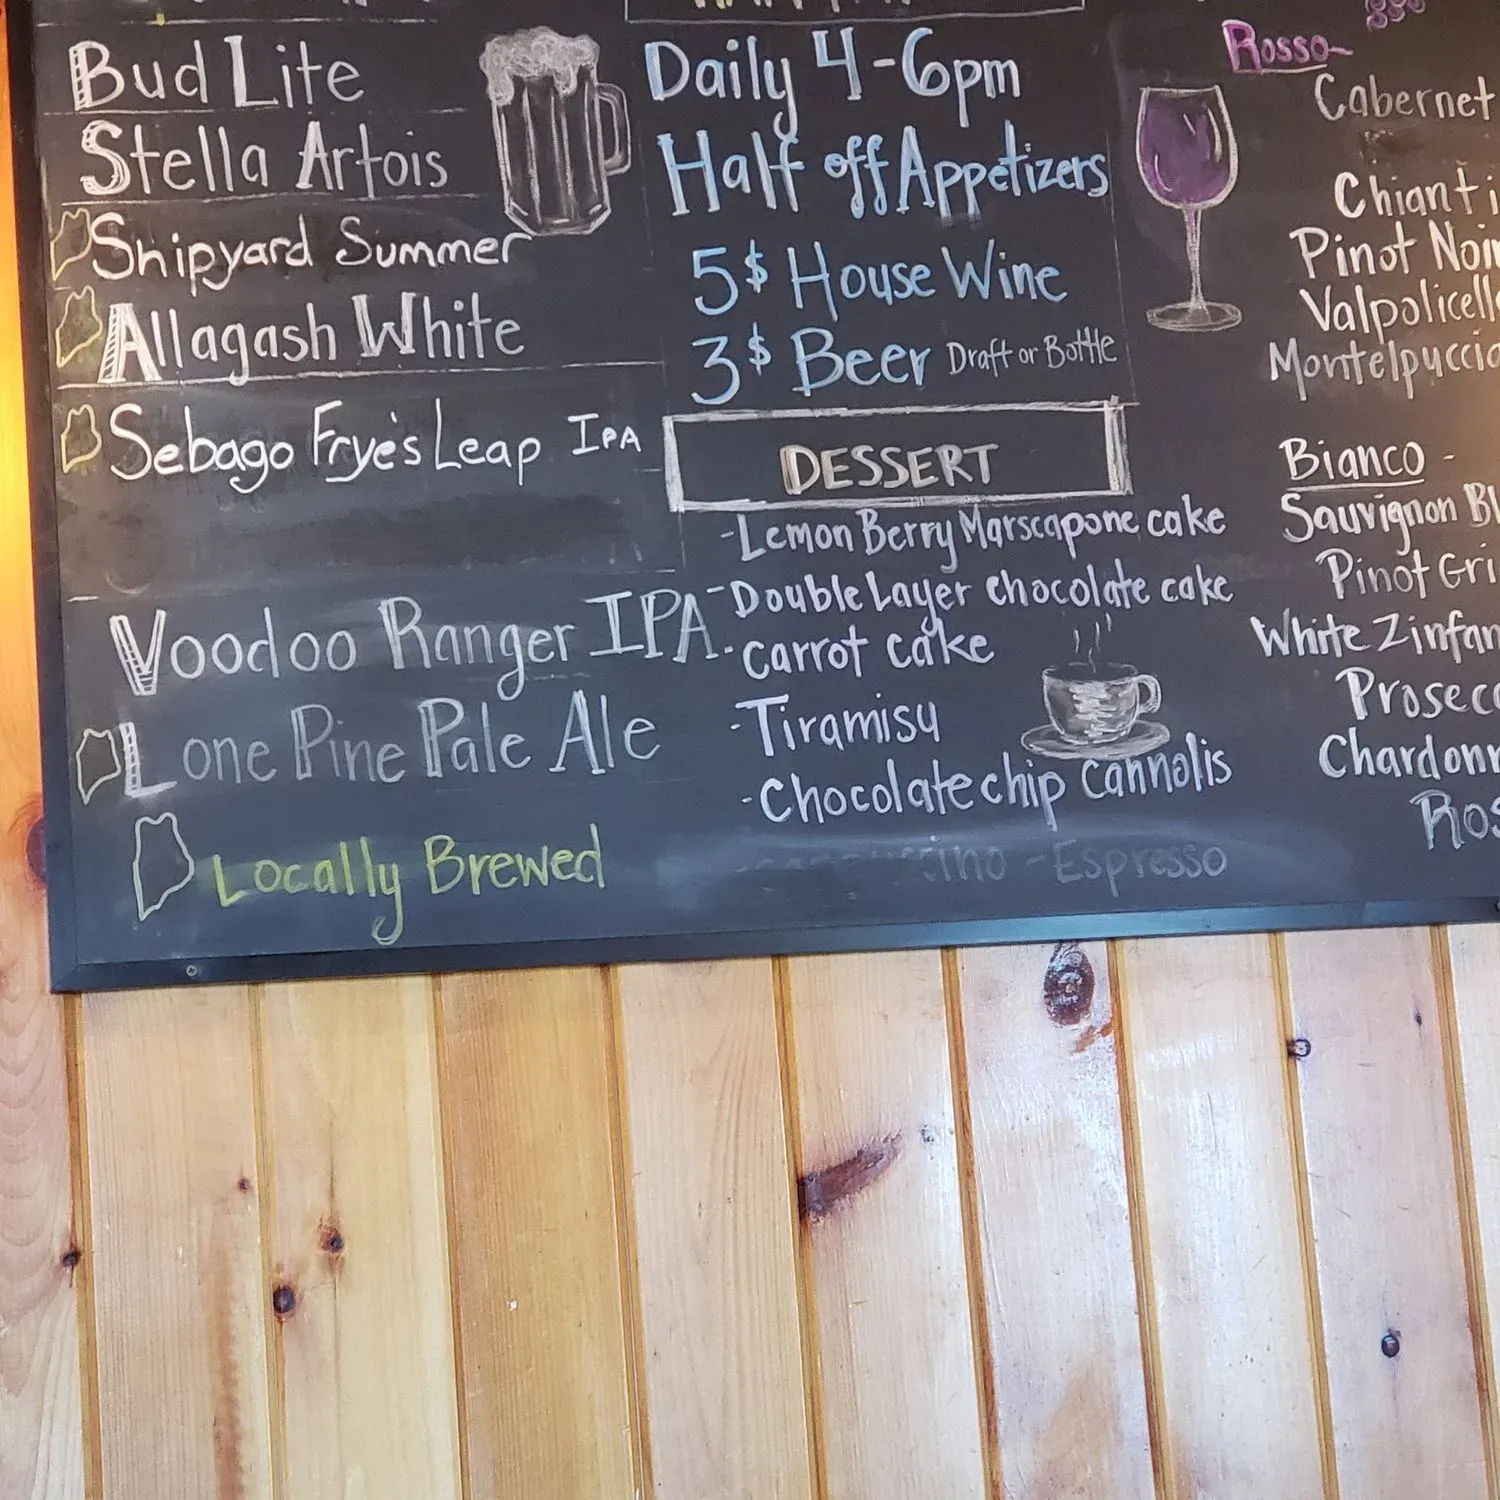 Bud Lite
Stella Artois
Shipyard Summer
Allagash White
Sebago Frye's Leap IPA
Voodoo Ranger IPA
Lone Pine Pale Ale
Locally Brewed
Daily 4-6pm
Half off Appetizers
5$ House Wine
3$ Beer Draft or Bottle
DESSERT
-Lemon Berry Marscapone cake
-Double Layer chocolate cake
-Carrot cake
-Tiramisu
-Chocolate chip Cannolis
-Espresso
Rosso-
Cabernet
Chianti
Pinot Noi
Valpolicell
Montelpuccia
Bianco -
Sauvignon Bl
Pinot Gri
White Zinfan
Prosecc
Chardonn
Ros